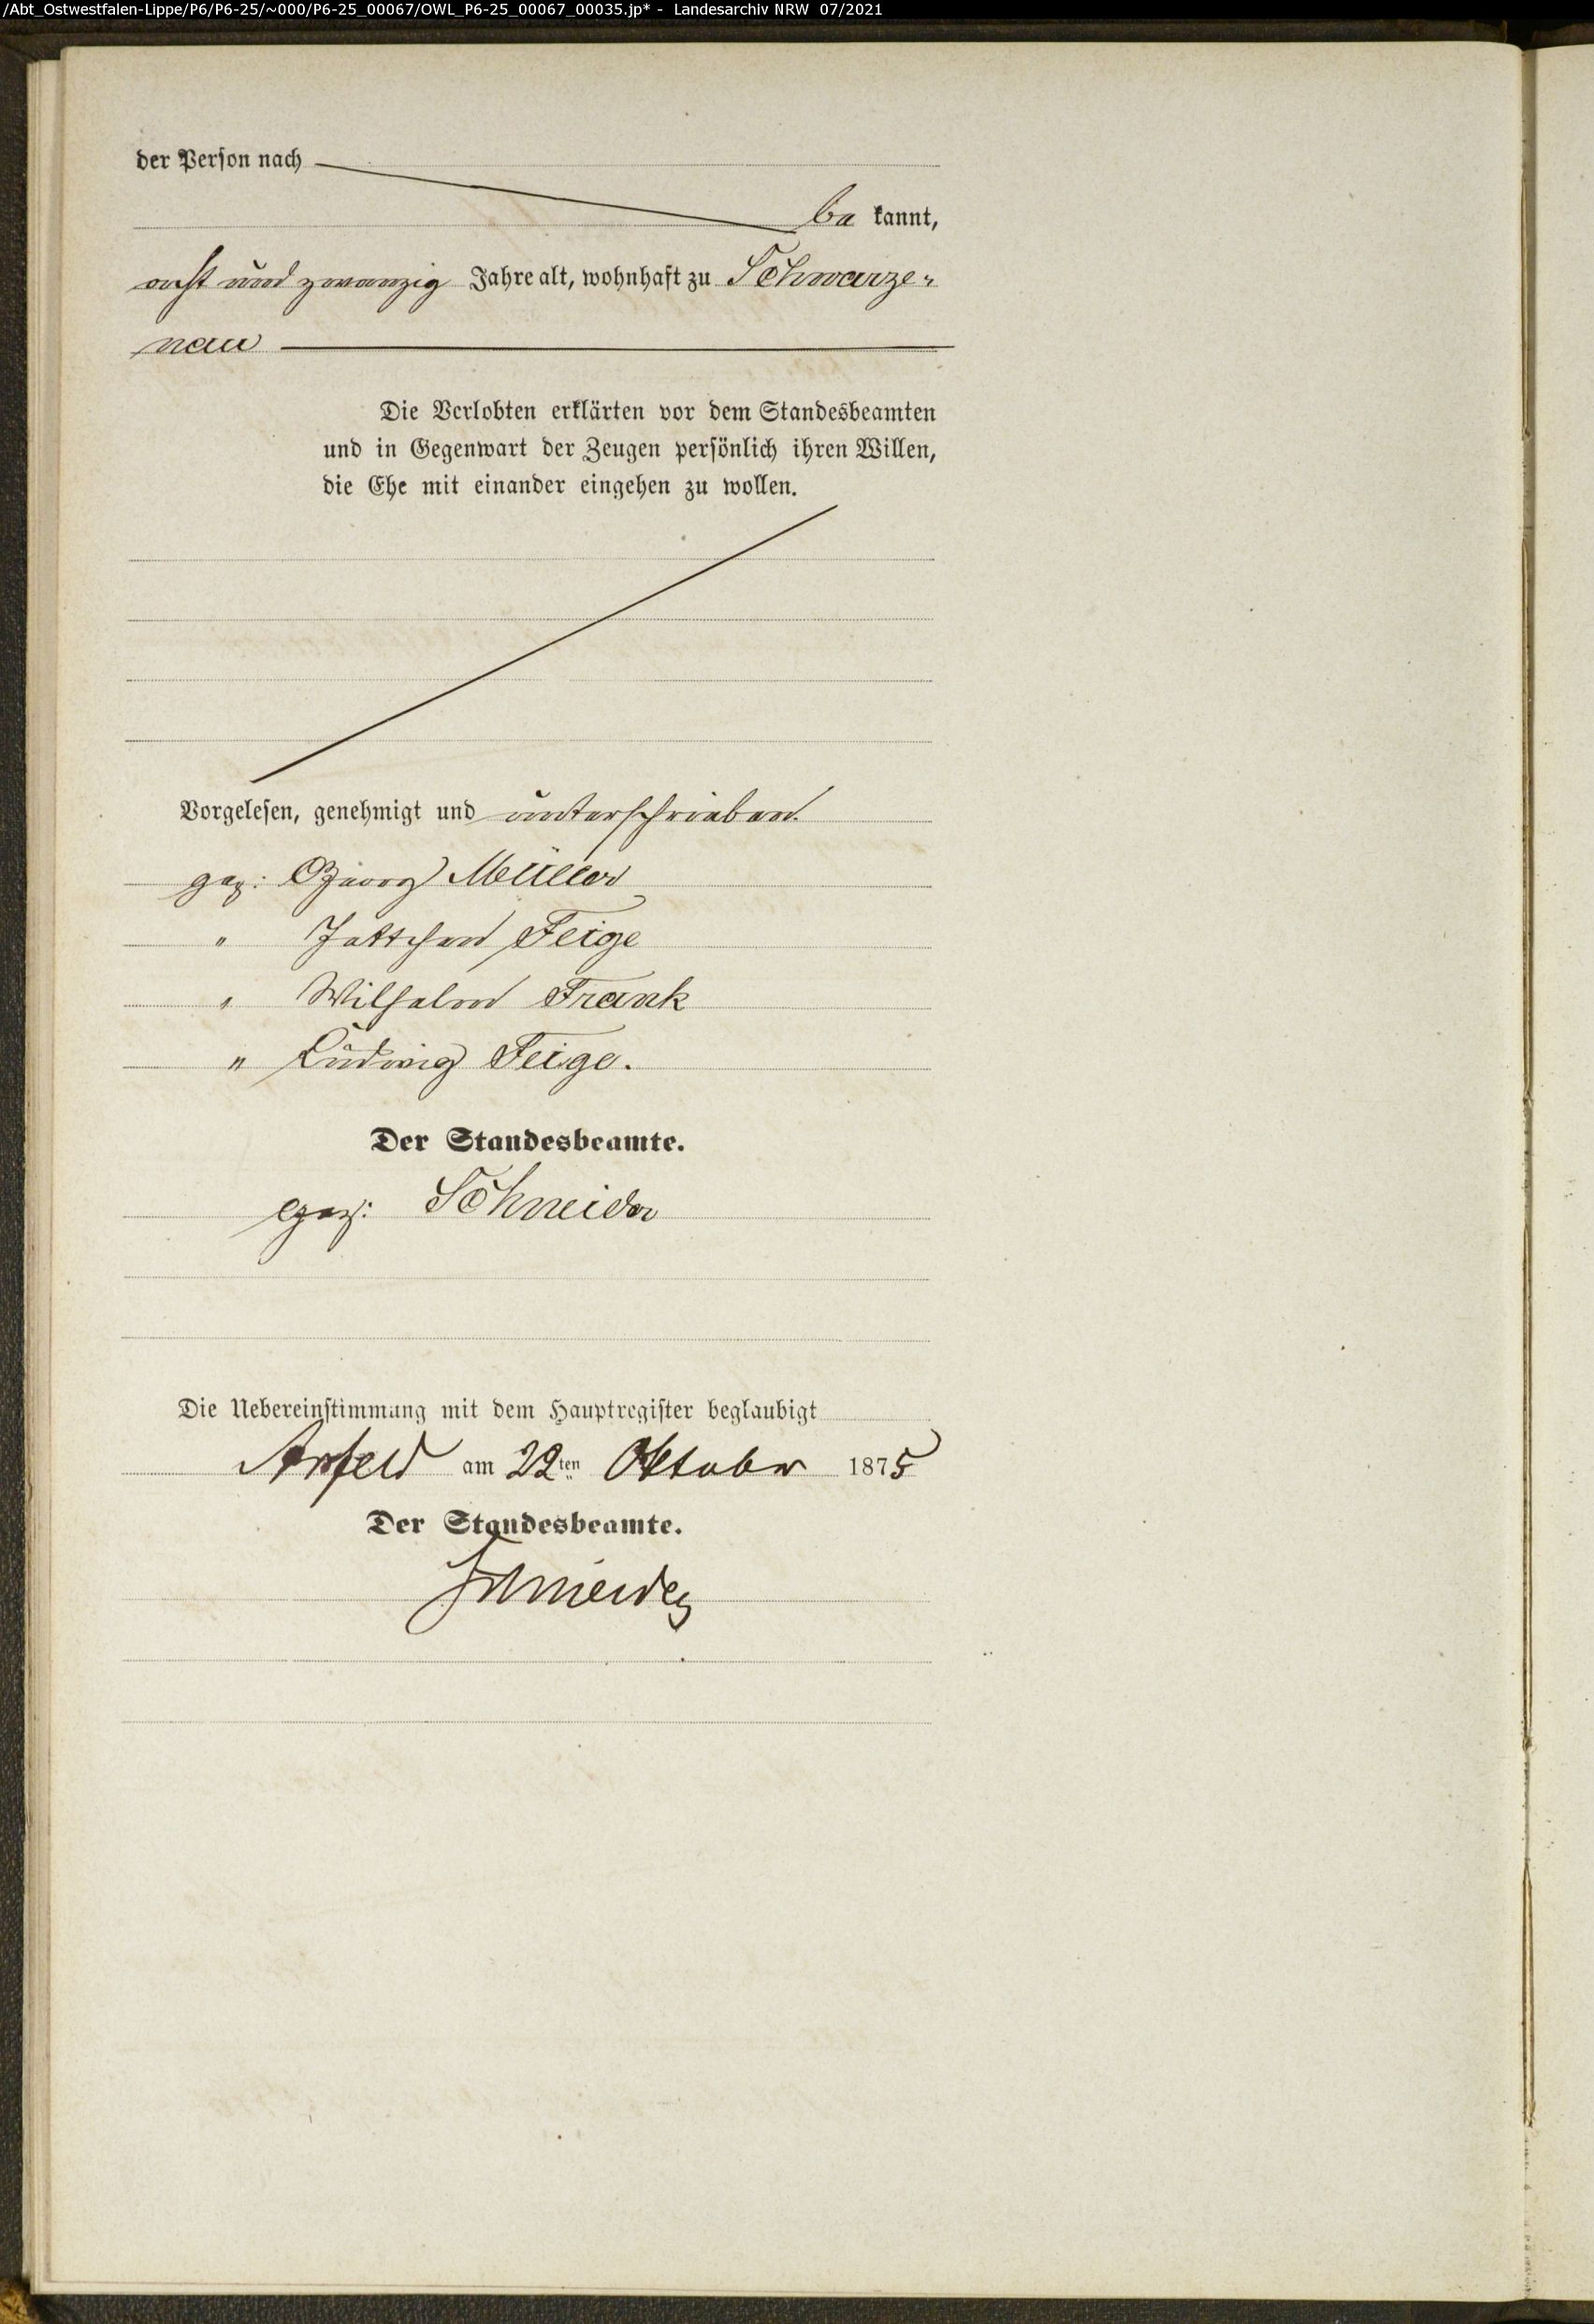 /Abt_Ostwestfalen-Lippe/P6/P6-25/~000/P6-25_00067/OWL_P6-25_00067_00035.jp* - Landesarchiv NRW 07/2021
der Person nach
be kannt,
acht und zwanzig Jahre alt, wohnhaft zu Schwarze-
nau
Die Verlobten erklärten vor dem Standesbeamten
und in Gegenwart der Zeugen persönlich ihren Willen,
die Ehe mit einander eingehen zu wollen.
Vorgelesen, genehmigt und unterschrieben.
gez: Georg Müller
" Jettchen Feige
" Wilhelm Frank
" Ludwig Feige.
Der Standesbeamte.
gez: Schneider
Die Uebereinstimmung mit dem Hauptregister beglaubigt
Arfeld am 22ten Oktober 1875
Der Standesbeamte.
Schneider